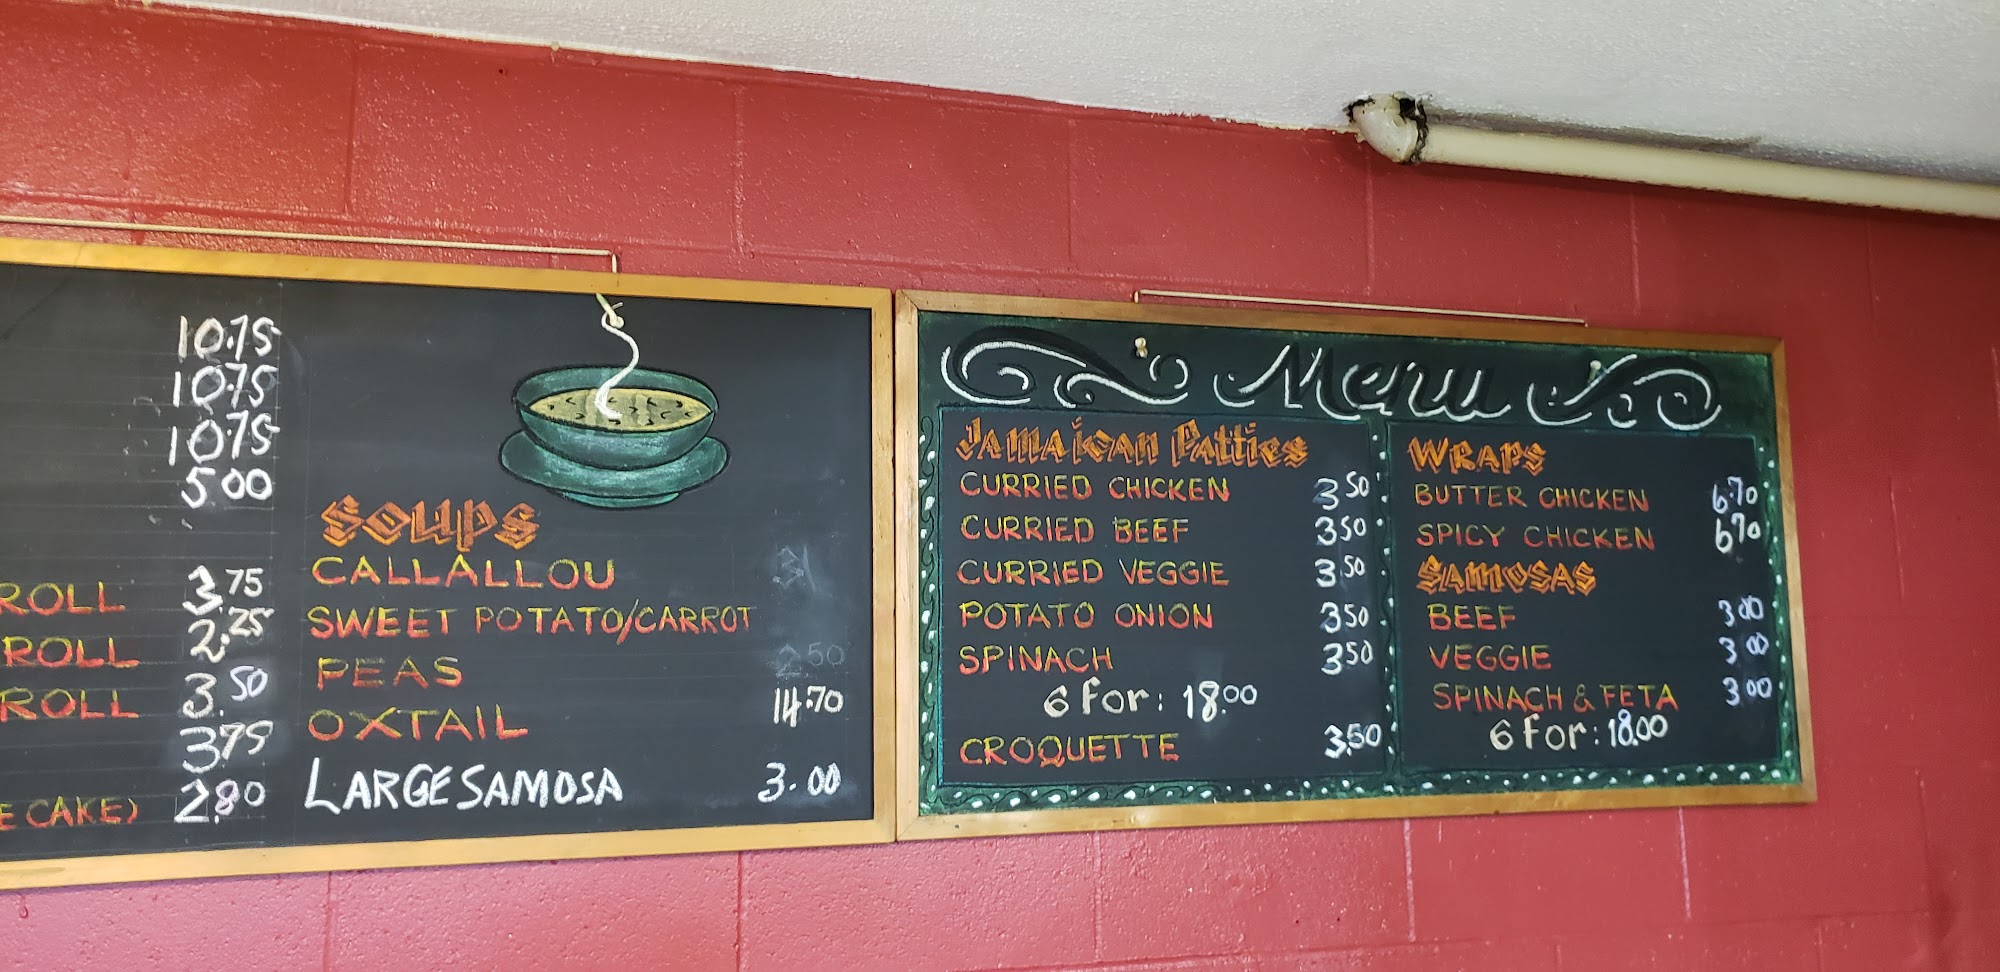 10.75
10.75
10.75
5.00
ROLL 3.75
ROLL 2.25
ROLL 3.50
3.75
E CAKE) 2.80
Soups
CALLALLOU
SWEET POTATO/CARROT
PEAS
OXTAIL 14.70
LARGE SAMOSA 3.00
Menu
Jamaican Patties
CURRIED CHICKEN 3.50
CURRIED BEEF 3.50
CURRIED VEGGIE 3.50
POTATO ONION 3.50
SPINACH 3.50
6 for: 18.00
CROQUETTE 3.50
WRAPS
BUTTER CHICKEN 6.70
SPICY CHICKEN 6.70
SAMOSAS
BEEF 3.00
VEGGIE 3.00
SPINACH & FETA 3.00
6 for: 18.00